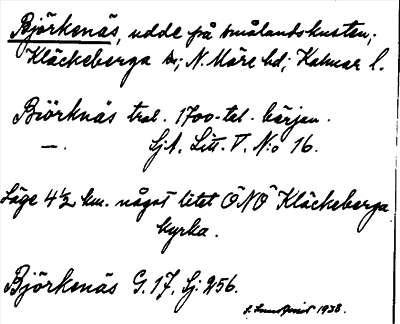 Björkenäs, udde på smålandskusten;
Kläckeberga sn; N. Möre hd; Kalmar l.
Biörknäs trol. 1700-tal. början.
—. SjA. Litt. V. N:o 16.
Läge 4½ km. något litet ÖNÖ Kläckeberga
kyrka.
Björkenäs G. 17, Sj. 256.
1938.